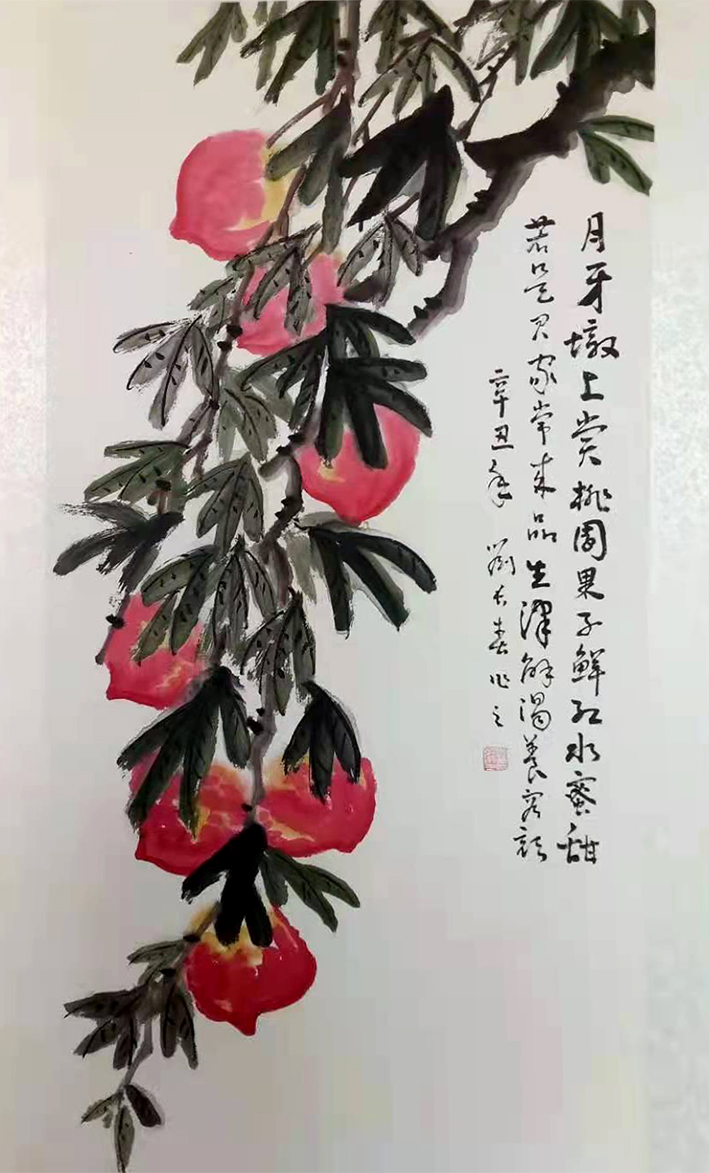 月牙墩上赏桃园果子鲜红水蜜甜
若是君家常来品生津解渴养容颜
辛丑年 刘长春作之